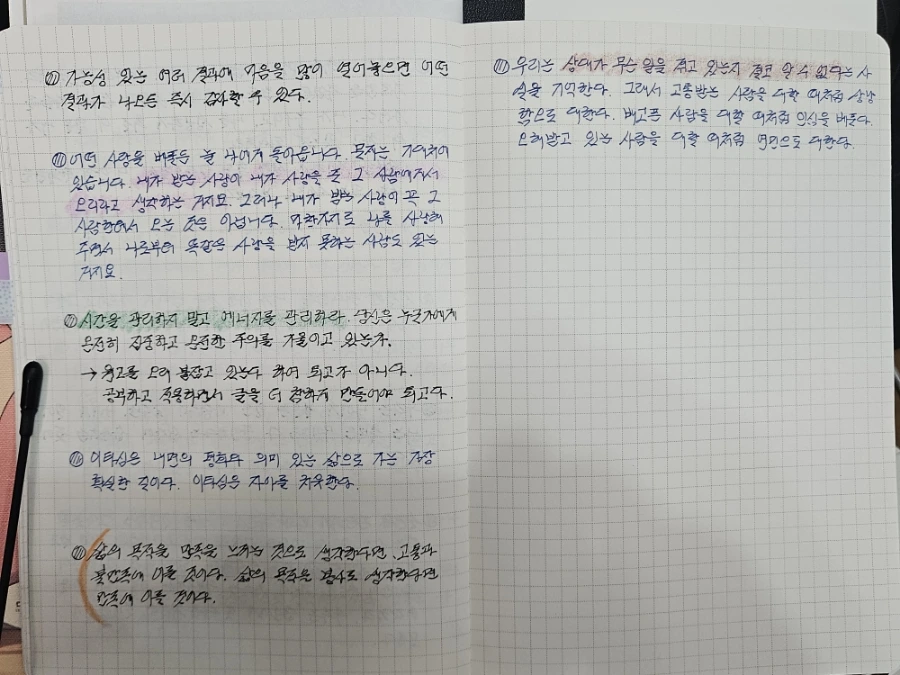 가능성 있는 여러 결과에 마음을 많이 열어놓으면 어떤
결과가 나오든 즉시 감사할 수 있다.
어떤 사랑을 베풀든 늘 나에게 돌아옵니다. 문제는 기대치에
있습니다. 내가 받는 사랑이 내가 사랑을 준 그 사람에게서
오리라고 생각하는 거지요. 그러나 내가 받는 사랑이 꼭 그
사람한테서 오는 것은 아닙니다. 마찬가지로 나를 사랑해
주면서 나로부터 똑같은 사랑을 받지 못하는 사람도 있는
거지요.
시간을 관리하지 말고 에너지를 관리하라. 당신은 누군가에게
온전히 집중하고 온전한 주의를 기울이고 있는가.
→ 원고를 오래 붙잡고 있는다 하여 퇴고가 아니다.
공부하고 적용하면서 글을 더 강하게 만들어야 퇴고다.
이타심은 내면의 평화와 의미 있는 삶으로 가는 가장
확실한 길이다. 이타심은 자아를 치유한다.
삶의 목적을 만족을 느끼는 것으로 생각한다면, 고통과
불만족에 이를 것이다. 삶의 목적을 봉사로 생각한다면
만족에 이를 것이다.
우리는 상대가 무슨 일을 겪고 있는지 결코 알 수 없다는 사
실을 기억한다. 그래서 고통받는 사람을 대할 때처럼 상냥
함으로 대한다. 배고픈 사람을 대할 때처럼 인심을 베푼다.
오해받고 있는 사람을 대할 때처럼 연민으로 대한다.